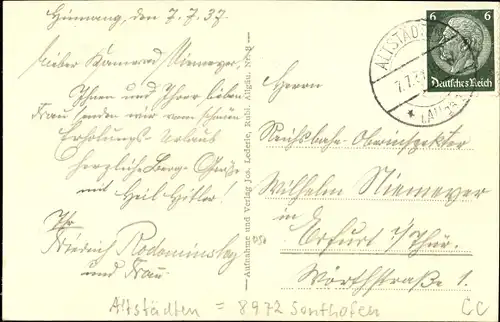 Hinnang, den 7.7.37.
Lieber Kamerad Niemeyer,
Ihnen und Ihrer lieben
Frau senden wir vom schönen
Erholungs-Urlaub
herzliche Berg-Grüße
mit Heil Hitler!
Ihr
Friedrich
und Frau.
Aufnahme und Verlag Jos. Lederle, Rubi, Allgäu. Nr.
6 6
Deutsches Reich
ALTSTÄD
7.7.37
Herrn
Reichsbahn-Oberinspektor
Wilhelm Niemeyer
in
Erfurt i/Thür.
Wörthstraße 1.
Altstädten = 8972 Sonthofen
CC